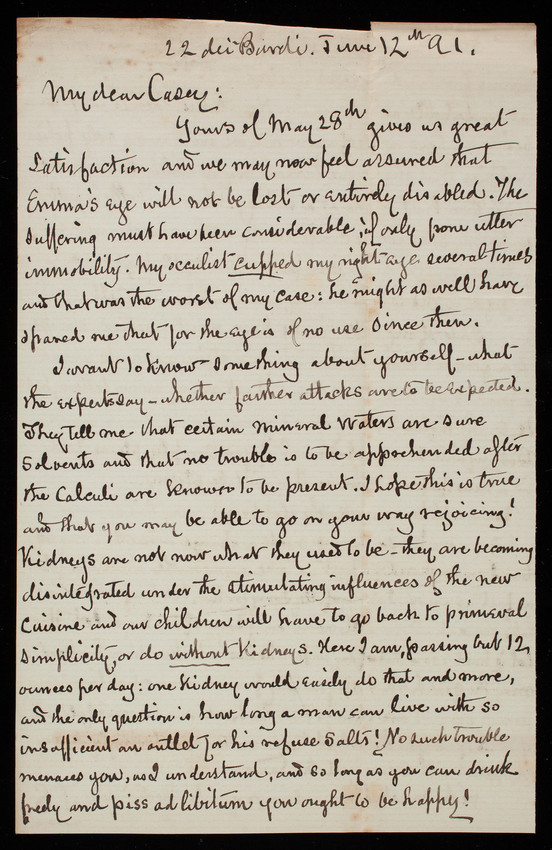 22 dei Bardi. June 12th 91.
My dear Casey:
Yours of May 28th gives us great
satisfaction and we may now feel assured that
Emma's eye will not be lost or entirely disabled. The
suffering must have been considerable, if only from utter
immobility. My occulist cupped my right eye several times
and that was the worst of my case: he might as well have
spared me that for the eye is of no use since then.
I want to know something about yourself - what
the experts say - whether farther attacks are to be expected.
They tell me that certain mineral waters are sure
solvents and that no trouble is to be apprehended after
the calculi are known to be present. I hope this is true
and that you may be able to go on your way rejoicing!
Kidneys are not now what they used to be - they are becoming
disintegrated under the stimulating influences of the new
cuisine and our children will have to go back to primeval
simplicity, or do without Kidneys. Here I am, passing but 12
ounces per day: one Kidney would easily do that and more,
and the only question is how long a man can live with so
insufficient an outlet for his refuse salts! No such trouble
menaces you, as I understand, and so long as you can drink
freely and piss ad libitum you ought to be happy!